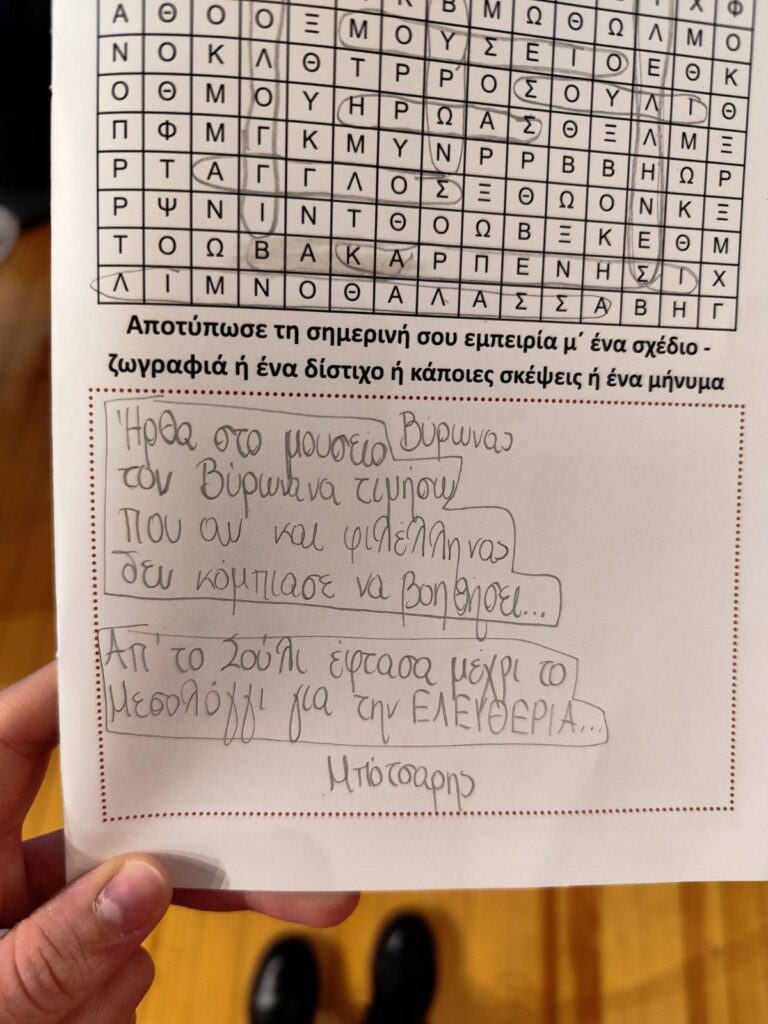 Χ Φ
Κ Β Μ Ω Θ Ω Λ Μ Ο
Α Θ Ο Ο Ξ Μ Ο Υ Σ Ε Ι Ο Ε Θ Κ
Ν Ο Κ Λ Θ Τ Ρ Ρ Ο Σ Ο Υ Λ Ι Θ
Ο Θ Μ Ο Υ Η Ρ Ω Α Σ Θ Ξ Λ Μ Ξ
Π Φ Μ Γ Κ Μ Υ Ν Ρ Ρ Β Β Η Ω Ρ
Ρ Τ Α Γ Γ Λ Ο Σ Ξ Θ Ω Ο Ν Κ Ξ
Ρ Ψ Ν Ι Ν Τ Θ Ο Ω Β Ξ Κ Ε Θ Μ
Τ Ο Ω Β Α Κ Α Ρ Π Ε Ν Η Σ Ι Χ
Λ Ι Μ Ν Ο Θ Α Λ Α Σ Σ Α Β Η Γ
Αποτύπωσε τη σημερινή σου εμπειρία μ΄ ένα σχέδιο -
ζωγραφιά ή ένα δίστιχο ή κάποιες σκέψεις ή ένα μήνυμα
Ήρθα στο μουσείο Βύρωνας
τον Βύρωνα να τιμήσω
που αν και φιλέλληνας
δεν κόμπιασε να βοηθήσει...
Απ' το Σούλι έφτασα μέχρι το
Μεσολόγγι για την ΕΛΕΥΘΕΡΙΑ...
Μπότσαρης